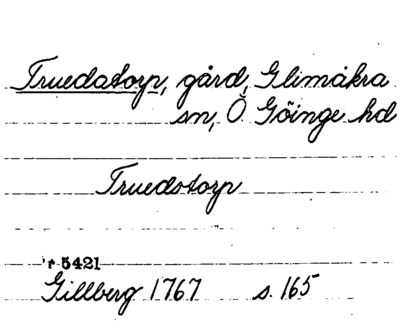 Truedstorp, gård, Glimåkra
sn, Ö Göinge hd
Truedstorp
5421
Gillberg 1767 s. 165